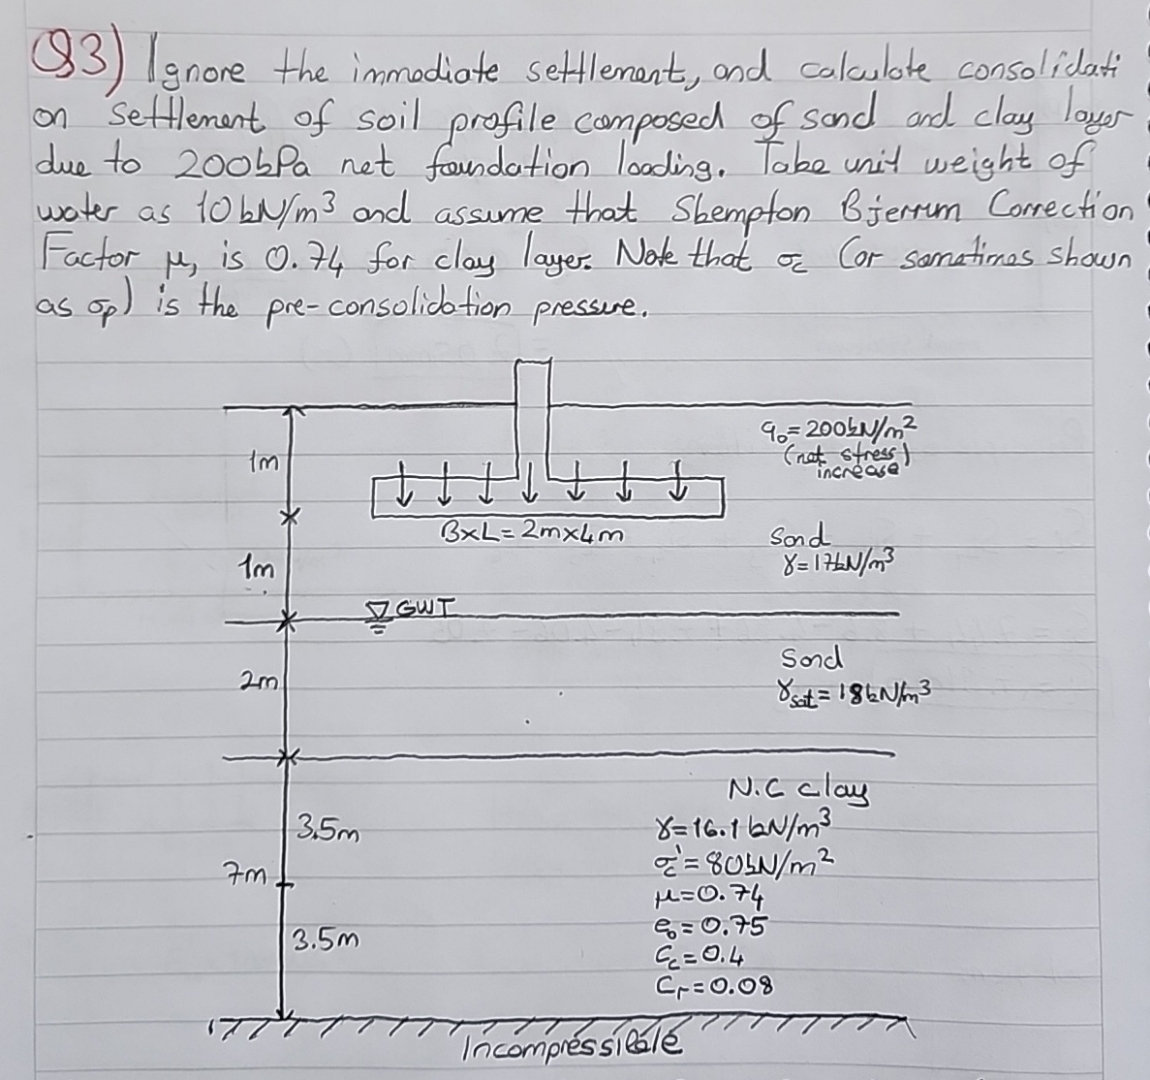 Q3) Ignore the immediate settlement, and calculate consolidati
on settlement of soil profile composed of sand and clay layer
due to 200kPa net foundation loading. Take unit weight of
water as 10kN/m³ and assume that Skempton Bjerrum Correction
Factor μ, is 0.74 for clay layer. Note that σc (or sometimes shown
as σp) is the pre-consolidation pressure.
q₀=200kN/m²
(net stress)
increase
1m
B×L=2m×4m
Sand
γ=17kN/m³
1m
GWT
Sand
γsat=18kN/m³
2m
N.C clay
γ=16.1kN/m³
σc'=80kN/m²
μ=0.74
e₀=0.75
Cc=0.4
Cr=0.08
3.5m
7m
3.5m
Incompressible